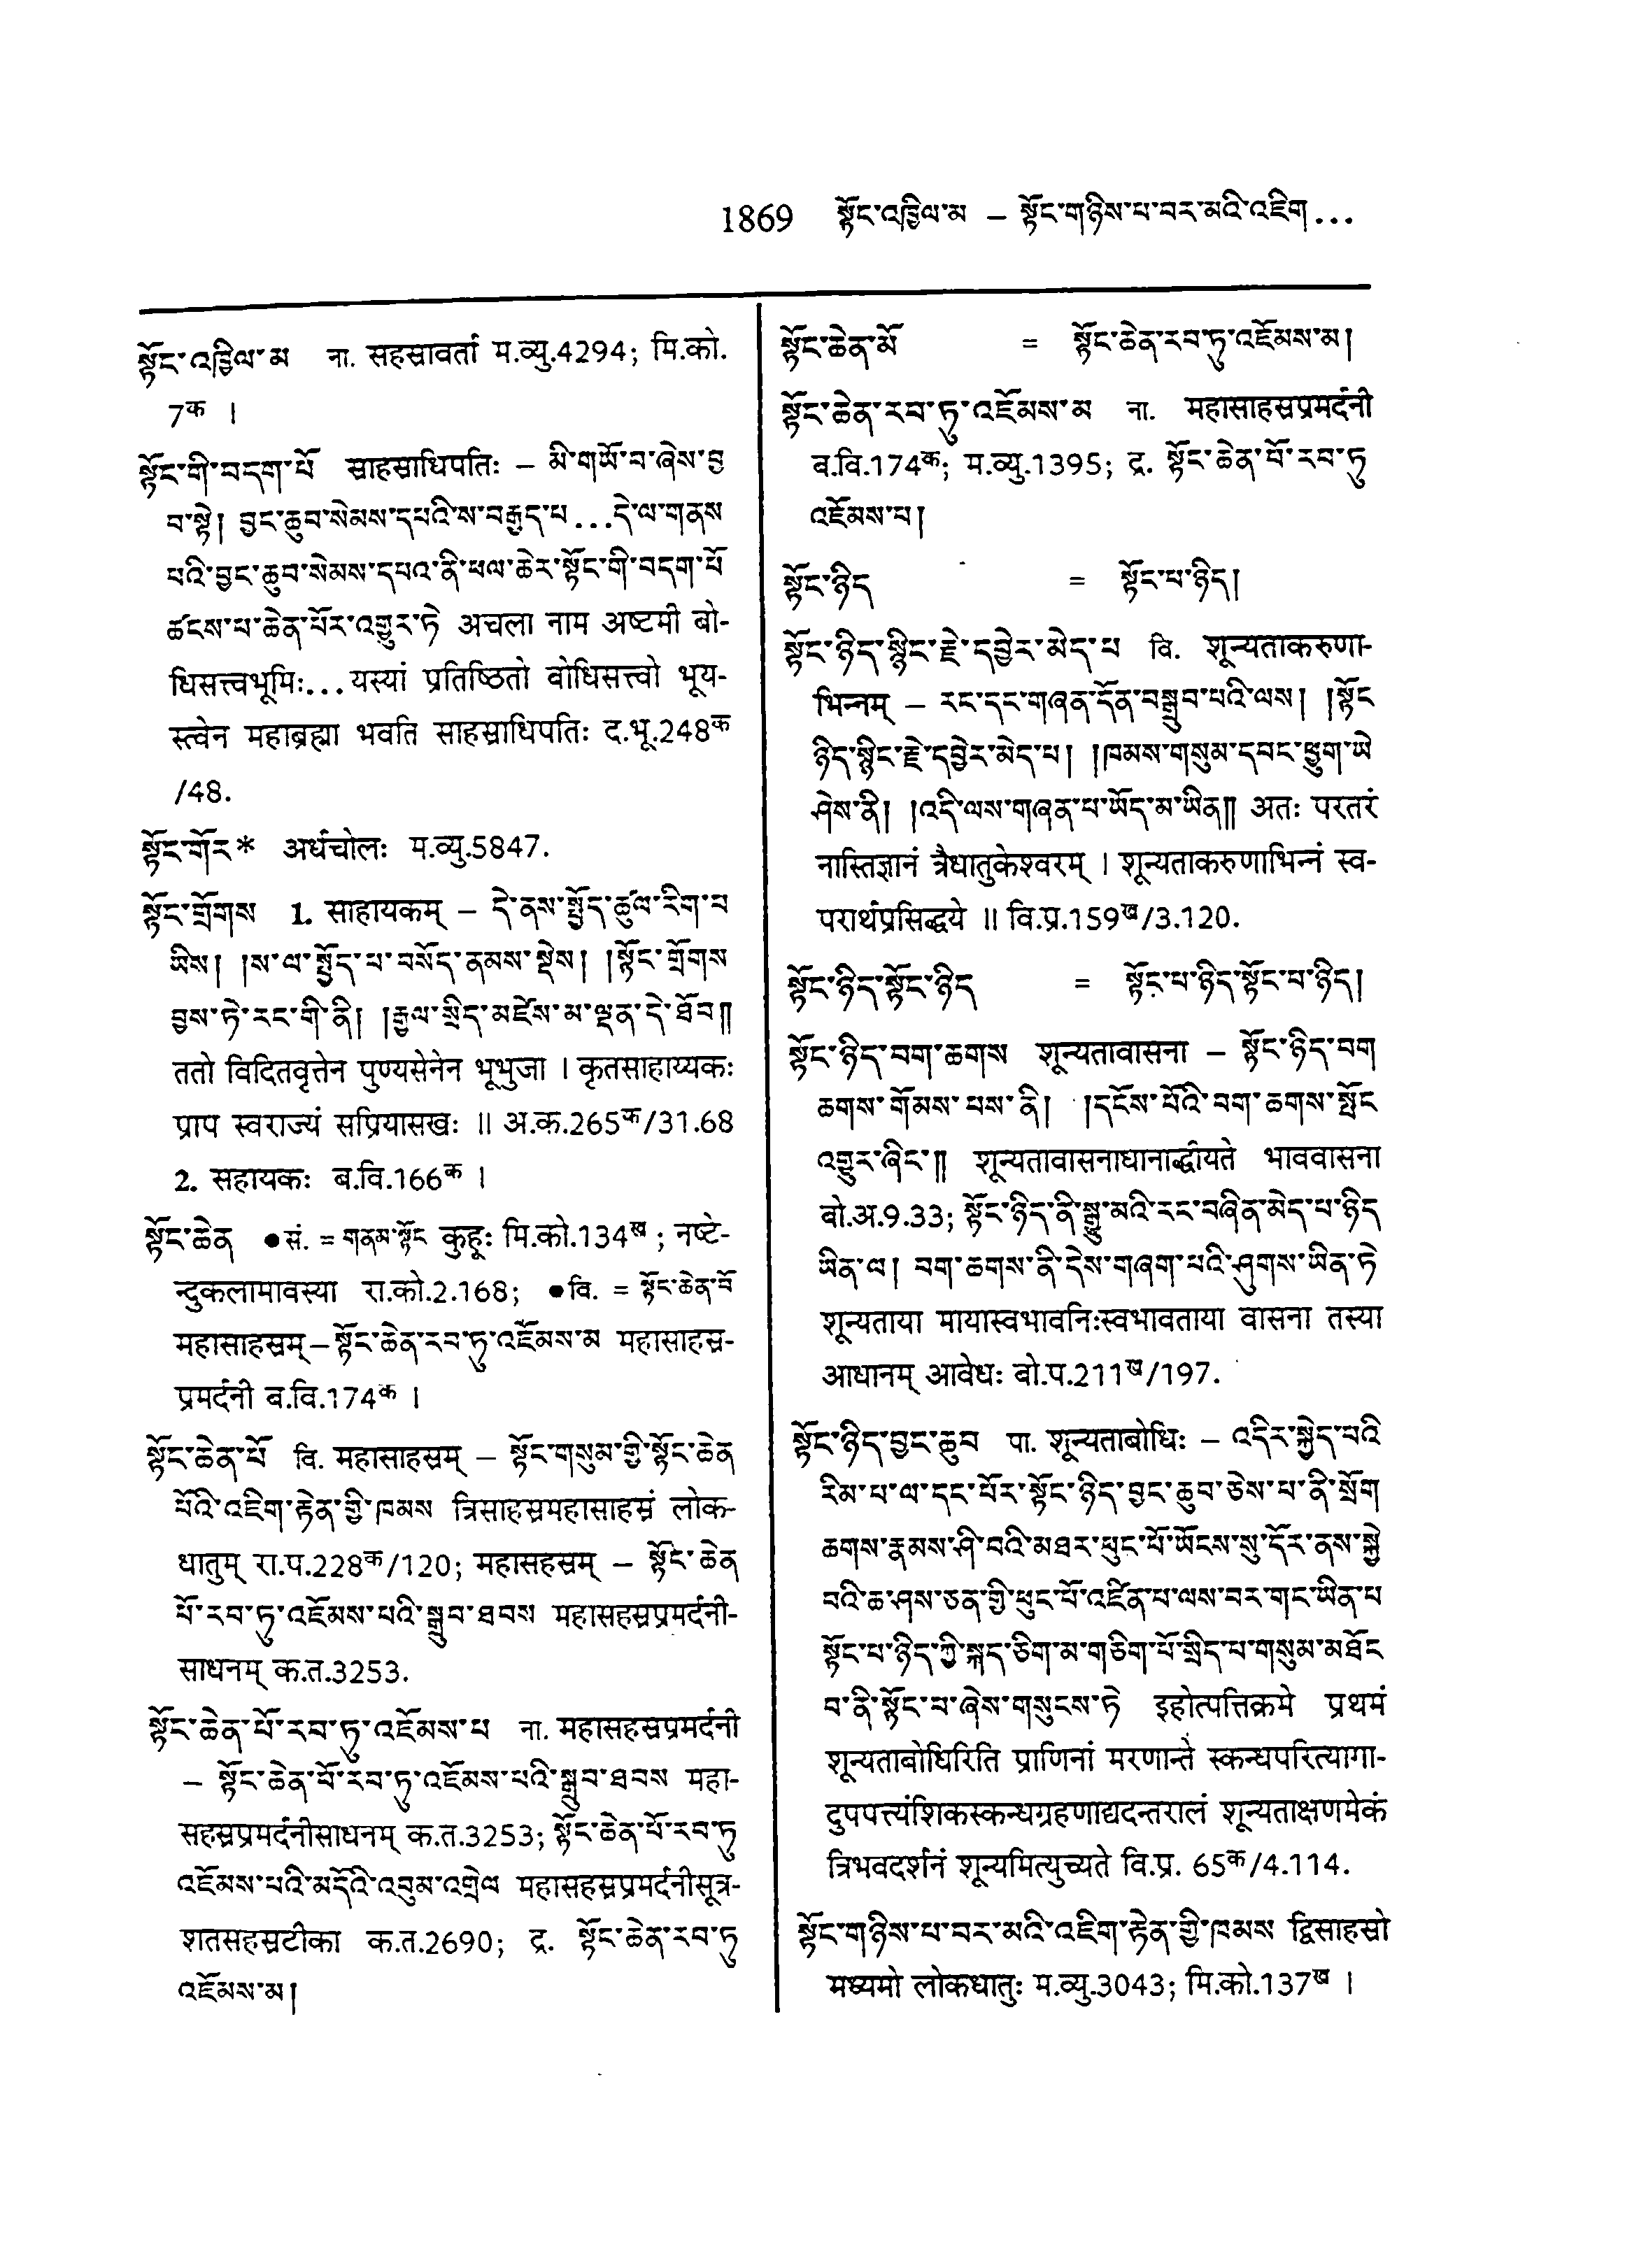 1869 སྟོང་འཁྱིལ་མ – སྟོང་གཉིས་པ་བར་མའི་འཇིག...
སྟོང་འཁྱིལ་མ ना. सहस्रावर्ता म.व्यु.4294; मि.को.
7क ।
སྟོང་གི་བདག་པོ साहस्राधिपतिः – མི་གཡོ་བ་ཞེས་བྱ
བ་སྟེ། བྱང་ཆུབ་སེམས་དཔའི་ས་བརྒྱད་པ...དེ་ལ་གནས
པའི་བྱང་ཆུབ་སེམས་དཔའ་ནི་ཕལ་ཆེར་སྟོང་གི་བདག་པོ
ཚངས་པ་ཆེན་པོར་འགྱུར་ཏེ अचला नाम अष्टमी बो-
धिसत्त्वभूमिः...यस्यां प्रतिष्ठितो बोधिसत्त्वो भूय-
स्त्वेन महाब्रह्मा भवति साहस्राधिपतिः द.भू.248क
/48.
སྟོང་གོར* अर्धचोलः म.व्यु.5847.
སྟོང་གྲོགས 1. साहायकम् – དེ་ནས་སྤྱོད་ཚུལ་རིག་པ
ཡིས། །ས་ལ་སྤྱོད་པ་བསོད་ནམས་སྡེས། །སྟོང་གྲོགས
བྱས་ཏེ་རང་གི་ནི། །རྒྱལ་སྲིད་མཛེས་མ་ལྡན་དེ་ཐོབ༎
ततो विदितवृत्तेन पुण्यसेनेन भूभुजा । कृतसाहाय्यकः
प्राप स्वराज्यं सप्रियासखः ॥ अ.क.265क/31.68
2. सहायकः ब.वि.166क ।
སྟོང་ཆེན ●सं. = གནམ་སྟོང कुहूः मि.को.134ख ; नष्टे-
न्दुकलामावस्या रा.को.2.168; ●वि. = སྟོང་ཆེན་པོ
महासाहस्रम् – སྟོང་ཆེན་རབ་ཏུ་འཇོམས་མ महासाहस्र-
प्रमर्दनी ब.वि.174क ।
སྟོང་ཆེན་པོ वि. महासाहस्रम् – སྟོང་གསུམ་གྱི་སྟོང་ཆེན
པོའི་འཇིག་རྟེན་གྱི་ཁམས त्रिसाहस्रमहासाहस्रं लोक-
धातुम् रा.प.228क/120; महासहस्रम् – སྟོང་ཆེན
པོ་རབ་ཏུ་འཇོམས་པའི་སྒྲུབ་ཐབས महासहस्रप्रमर्दनी-
साधनम् क.त.3253.
སྟོང་ཆེན་པོ་རབ་ཏུ་འཇོམས་པ ना. महासहस्रप्रमर्दनी
– སྟོང་ཆེན་པོ་རབ་ཏུ་འཇོམས་པའི་སྒྲུབ་ཐབས महा-
सहस्रप्रमर्दनीसाधनम् क.त.3253; སྟོང་ཆེན་པོ་རབ་ཏུ
འཇོམས་པའི་མདོའི་འབུམ་འགྲེལ महासहस्रप्रमर्दनीसूत्र-
शतसहस्रटीका क.त.2690; द्र. སྟོང་ཆེན་རབ་ཏུ
འཇོམས་མ།
སྟོང་ཆེན་མོ = སྟོང་ཆེན་རབ་ཏུ་འཇོམས་མ།
སྟོང་ཆེན་རབ་ཏུ་འཇོམས་མ ना. महासाहस्रप्रमर्दनी
ब.वि.174क; म.व्यु.1395; द्र. སྟོང་ཆེན་པོ་རབ་ཏུ
འཇོམས་པ།
སྟོང་ཉིད = སྟོང་པ་ཉིད།
སྟོང་ཉིད་སྙིང་རྗེ་དབྱེར་མེད་པ वि. शून्यताकरुणा-
भिन्नम् – རང་དང་གཞན་དོན་བསྒྲུབ་པའི་ལས། །སྟོང
ཉིད་སྙིང་རྗེ་དབྱེར་མེད་པ། །ཁམས་གསུམ་དབང་ཕྱུག་ཡེ
ཤེས་ནི། །འདི་ལས་གཞན་པ་ཡོད་མ་ཡིན༎ अतः परतरं
नास्तिज्ञानं त्रैधातुकेश्वरम् । शून्यताकरुणाभिन्नं स्व-
परार्थप्रसिद्धये ॥ वि.प्र.159ख/3.120.
སྟོང་ཉིད་སྟོང་ཉིད = སྟོང་པ་ཉིད་སྟོང་པ་ཉིད།
སྟོང་ཉིད་བག་ཆགས शून्यतावासना – སྟོང་ཉིད་བག
ཆགས་གོམས་པས་ནི། །དངོས་པོའི་བག་ཆགས་སྤོང
འགྱུར་ཞིང་༎ शून्यतावासनाधानाद्धीयते भाववासना
बो.अ.9.33; སྟོང་ཉིད་ནི་སྒྱུ་མའི་རང་བཞིན་མེད་པ་ཉིད
ཡིན་ལ། བག་ཆགས་ནི་དེས་གཞག་པའི་ཤུགས་ཡིན་ཏེ
शून्यताया मायास्वभावनिःस्वभावताया वासना तस्या
आधानम् आवेधः बो.प.211ख/197.
སྟོང་ཉིད་བྱང་ཆུབ पा. शून्यताबोधिः – འདིར་སྐྱེད་པའི
རིམ་པ་ལ་དང་པོར་སྟོང་ཉིད་བྱང་ཆུབ་ཅེས་པ་ནི་སྲོག
ཆགས་རྣམས་ཤི་བའི་མཐར་ཕུང་པོ་ཡོངས་སུ་དོར་ནས་སྐྱེ
བའི་ཆ་ཤས་ཅན་གྱི་ཕུང་པོ་འཛིན་པ་ལས་བར་གང་ཡིན་པ
སྟོང་པ་ཉིད་ཀྱི་སྐད་ཅིག་མ་གཅིག་པོ་སྲིད་པ་གསུམ་མཐོང
བ་ནི་སྟོང་བ་ཞེས་གསུངས་ཏེ इहोत्पत्तिक्रमे प्रथमं
शून्यताबोधिरिति प्राणिनां मरणान्ते स्कन्धपरित्यागा-
दुपपत्त्यंशिकस्कन्धग्रहणाद्यदन्तरालं शून्यताक्षणमेकं
त्रिभवदर्शनं शून्यमित्युच्यते वि.प्र. 65क/4.114.
སྟོང་གཉིས་པ་བར་མའི་འཇིག་རྟེན་གྱི་ཁམས द्विसाहस्रो
मध्यमो लोकधातुः म.व्यु.3043; मि.को.137ख ।